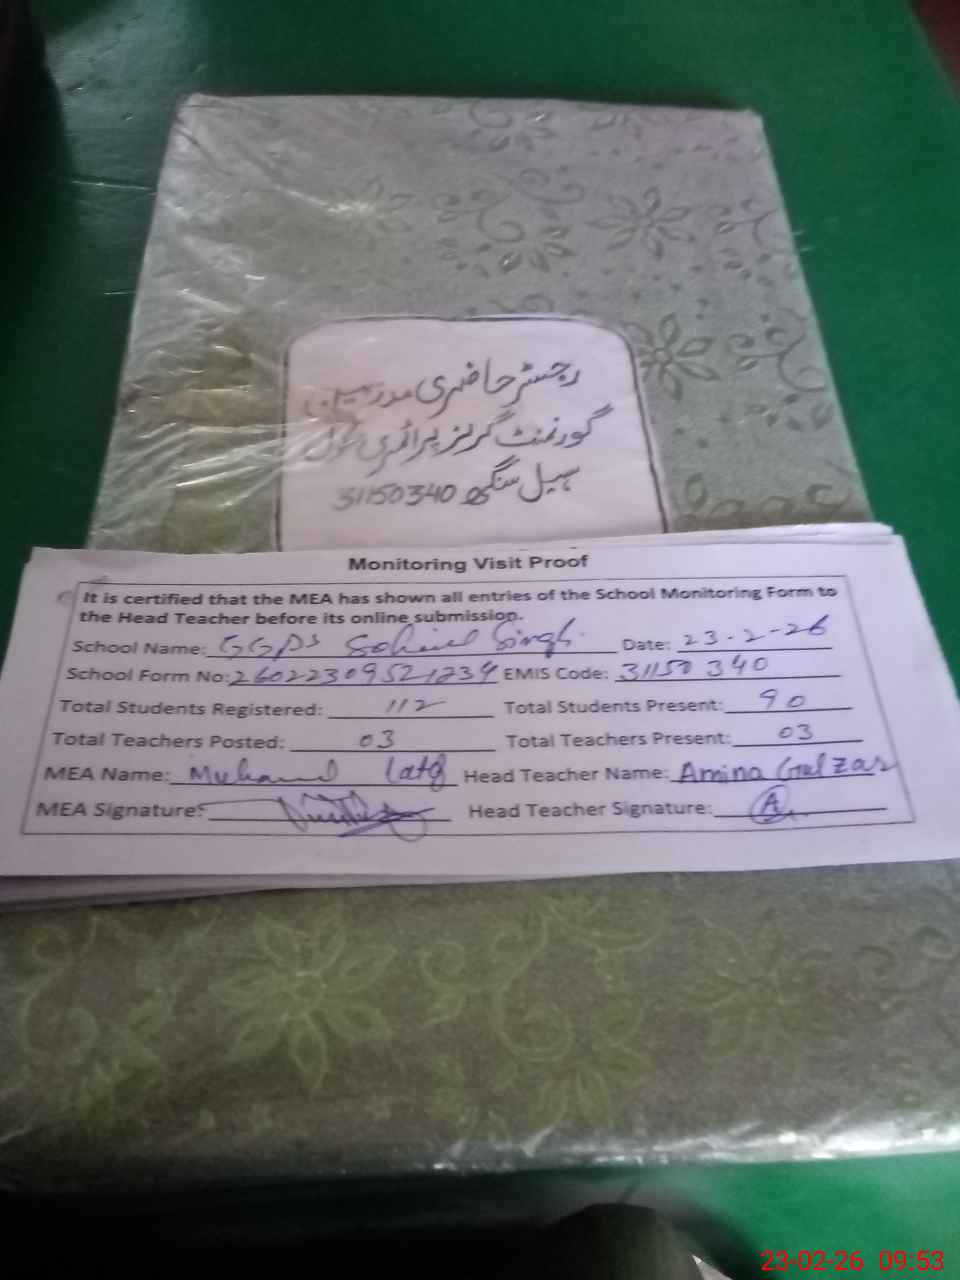 رجسٹر حاضری مدرسین
گورنمنٹ گرلز پرائمری سکول
سہیل سنگھ 31150340
Monitoring Visit Proof
It is certified that the MEA has shown all entries of the School Monitoring Form to
the Head Teacher before its online submission.
School Name: GGPS Sohail Singh Date: 23-2-26
School Form No: EMIS Code: 31150340
Total Students Registered: 112 Total Students Present: 90
Total Teachers Posted: 03 Total Teachers Present: 03
MEA Name: Head Teacher Name: Amina Gulzar
MEA Signature: Head Teacher Signature: A
23-02-26 09:53